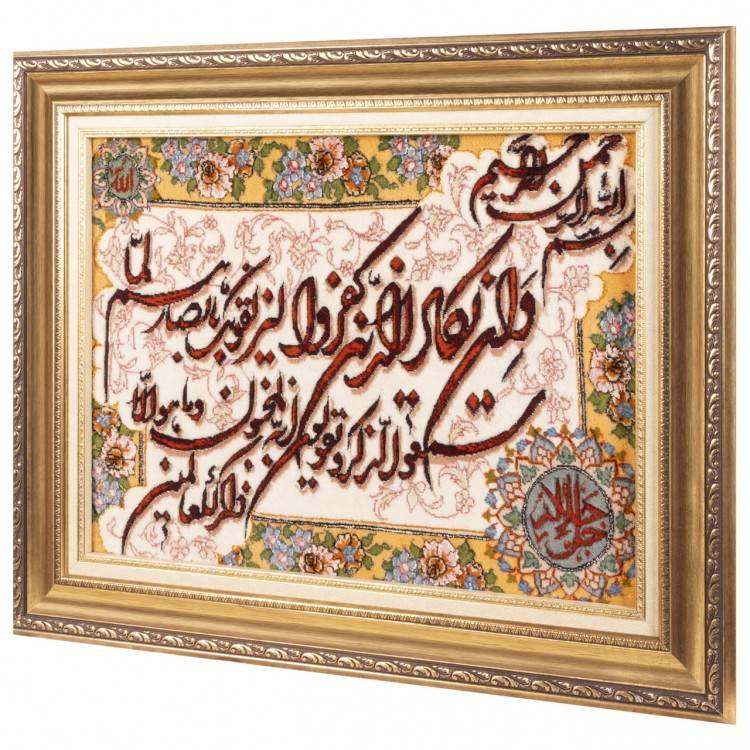 بسم الله الرحمن الرحیم
وَاِن یکاد الّذین کفروا لیزلقونک بابصارهم لمّا
سمعوا الذکر و یقولون انّه لمجنون و ما هو الّا
ذکر للعالمین
الله
جل جلاله